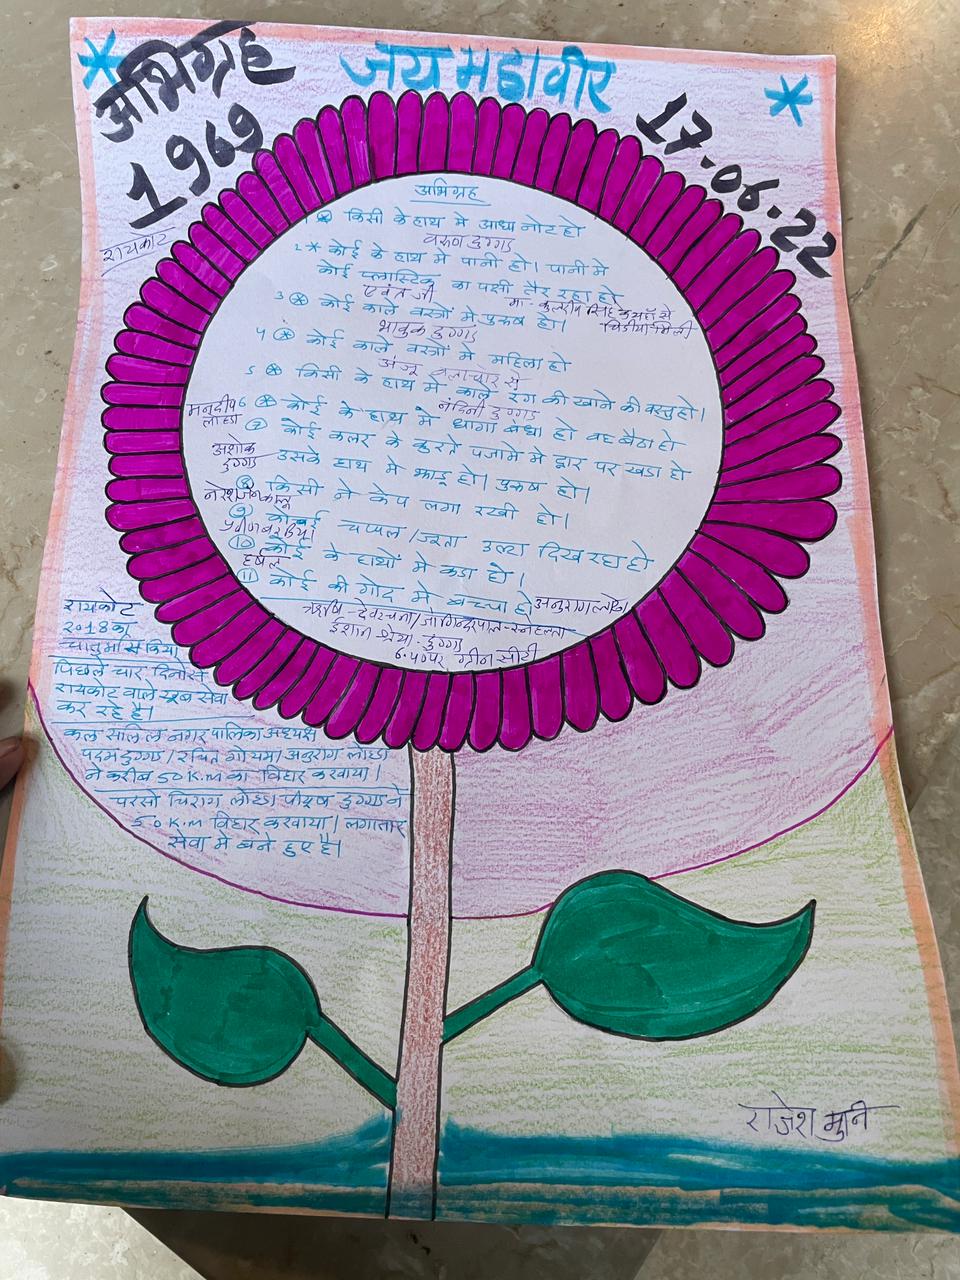 अभिग्रह
1969
जय महावीर
17.06.22
रायकोट
अभिग्रह
1 किसी के हाथ मे आधा नोट हो
वरुण डुग्गड
2 * कोई के हाथ मे पानी हो। पानी मे
कोई प्लास्टिक का पक्षी तैर रहा हो
मा. कुलदीप सिंह के यहाँ से
चिडीया मिली
3 कोई काले वस्त्रो मे पुरुष हो।
भावुक डुग्गड
4 कोई काले वस्त्रो मे महिला हो
अंजू बलाचोर से
5 किसी के हाथ मे काले रंग की खाने की वस्तु हो।
नंदिनी डुग्गड
6 कोई के हाथ मे धागा बंधा हो वह बैठा हो
मनदीप
लोढा
7 कोई कलर के कुरते पजामे मे द्वार पर खडा हो
उसके हाथ मे झाडू हो। पुरुष हो।
अशोक
डुग्गड
8 किसी ने केप लगा रखी हो।
9 कोई चप्पल / जूता उल्टा दिख रहा हो
10 कोई के हाथों मे कडा हो।
हर्षल
11 कोई की गोद मे बच्चा हो
अनुराग लोढा
ऋषि - देवरचना / जोगिन्द्रपाल - स्नेहलता
ईशान श्रेया - डुग्गड
6.40 पर ग्रीन सीटी
रायकोट
2018 का
चातुर्मास किया
पिछले चार दिनो से
रायकोट वाले खूब सेवा
कर रहे है।
कल सलिल नगर पालिका अध्यक्ष
पदम डुग्गड / रचित गोयम / अनुराग लोढा
ने करीब 50 K.m का विहार करवाया।
परसो चिराग लोढा पीयूष डुग्गड ने
50 K.m विहार करवाया। लगातार
सेवा मे बने हुए है।
राजेश मुनि